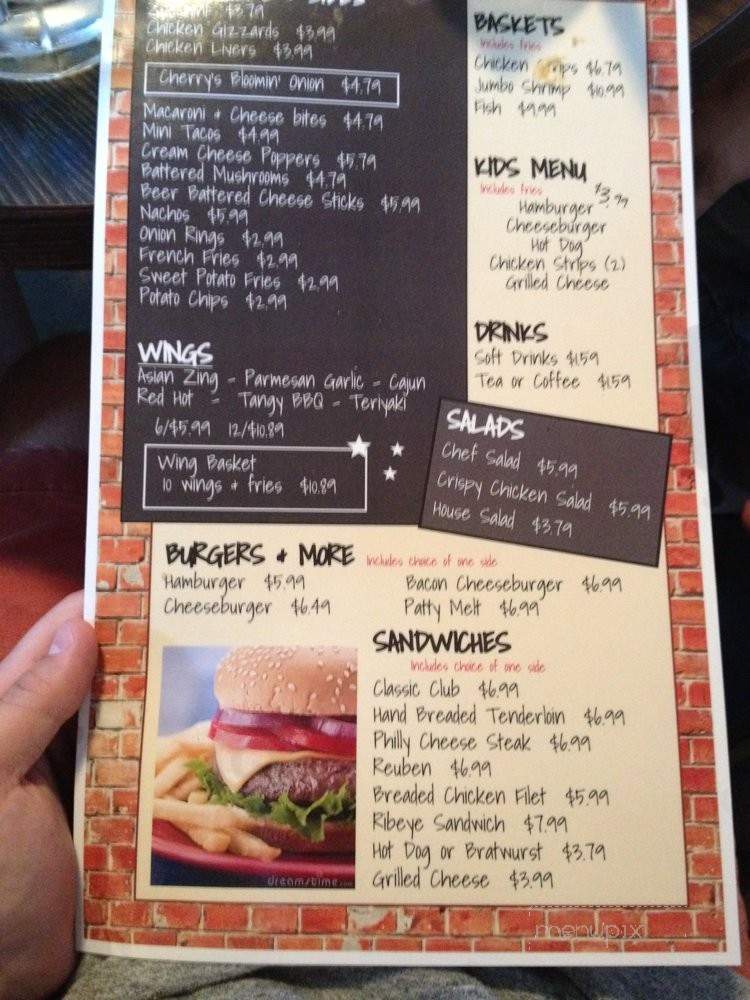 $3.79
Chicken Gizzards $3.99
Chicken Livers $3.99
Cherry's Bloomin' Onion $4.79
Macaroni & Cheese bites $4.79
Mini Tacos $4.99
Cream Cheese Poppers $5.79
Battered Mushrooms $4.79
Beer Battered Cheese Sticks $5.99
Nachos $5.99
Onion Rings $2.99
French Fries $2.99
Sweet Potato Fries $2.99
Potato Chips $2.99
WINGS
Asian Zing - Parmesan Garlic - Cajun
Red Hot - Tangy BBQ - Teriyaki
6/$5.99 12/$10.89
Wing Basket
10 wings & fries $10.89
BASKETS
Includes fries
Chicken Strips $6.79
Jumbo Shrimp $10.99
Fish $9.99
KIDS MENU
Includes fries $3.99
Hamburger
Cheeseburger
Hot Dog
Chicken Strips (2)
Grilled Cheese
DRINKS
Soft Drinks $1.59
Tea or Coffee $1.59
SALADS
Chef Salad $5.99
Crispy Chicken Salad $5.99
House Salad $3.79
BURGERS & MORE Includes choice of one side
Hamburger $5.99
Cheeseburger $6.49
Bacon Cheeseburger $6.99
Patty Melt $6.99
SANDWICHES
Includes choice of one side
Classic Club $6.99
Hand Breaded Tenderloin $6.99
Philly Cheese Steak $6.99
Reuben $6.99
Breaded Chicken Filet $5.99
Ribeye Sandwich $7.99
Hot Dog or Bratwurst $3.79
Grilled Cheese $3.99
dreamstime.com
menupix